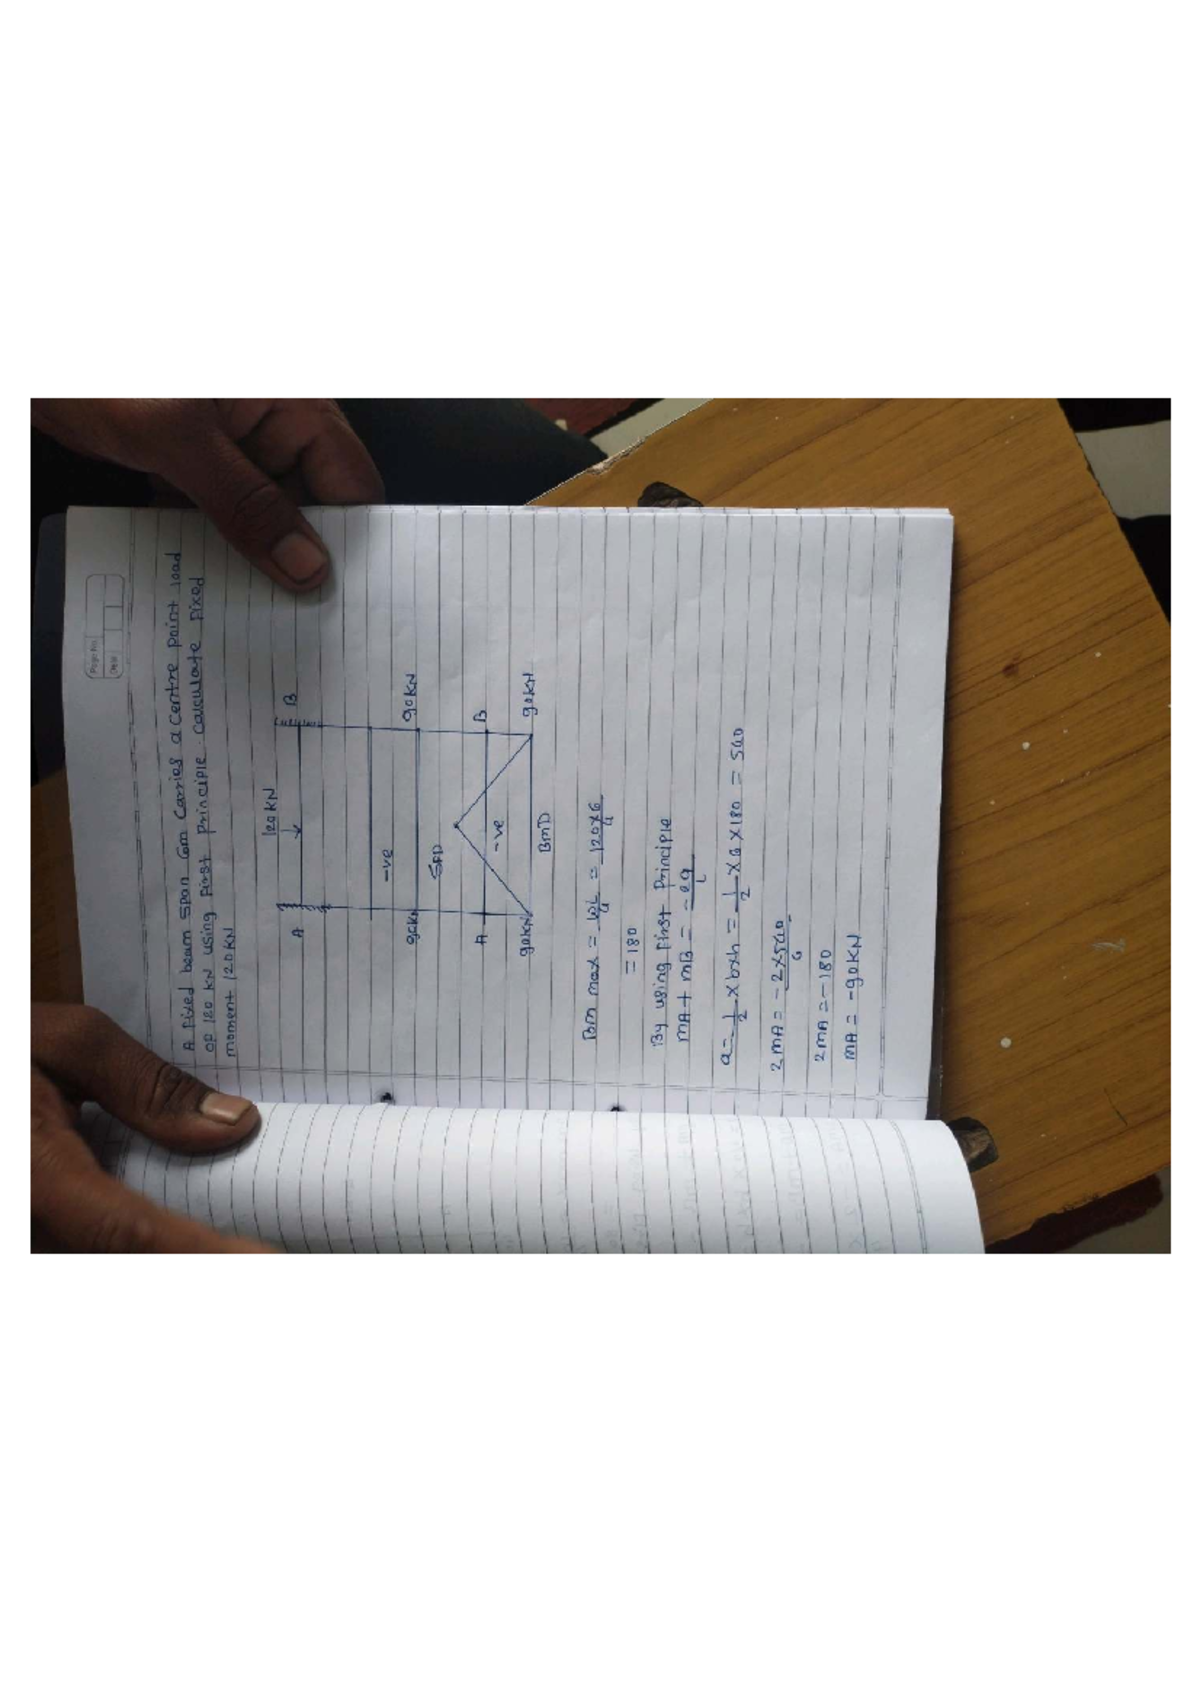 Page No.
Date
A fixed beam span 6m carries a centre point load
of 120 KN using first principle. calculate fixed
moment 120KN
120KN
A B
-ve
90KN 90KN
SFD
A B
-ve
90KN 90KN
BMD
BM max = WL/4 = 120×6/4
= 180
By using first principle
MA + MB = -2a/L
a = -1/2 × b×h = 1/2 × 6 × 180 = 540
2MA = -2×540/6
2MA = -180
MA = -90KN